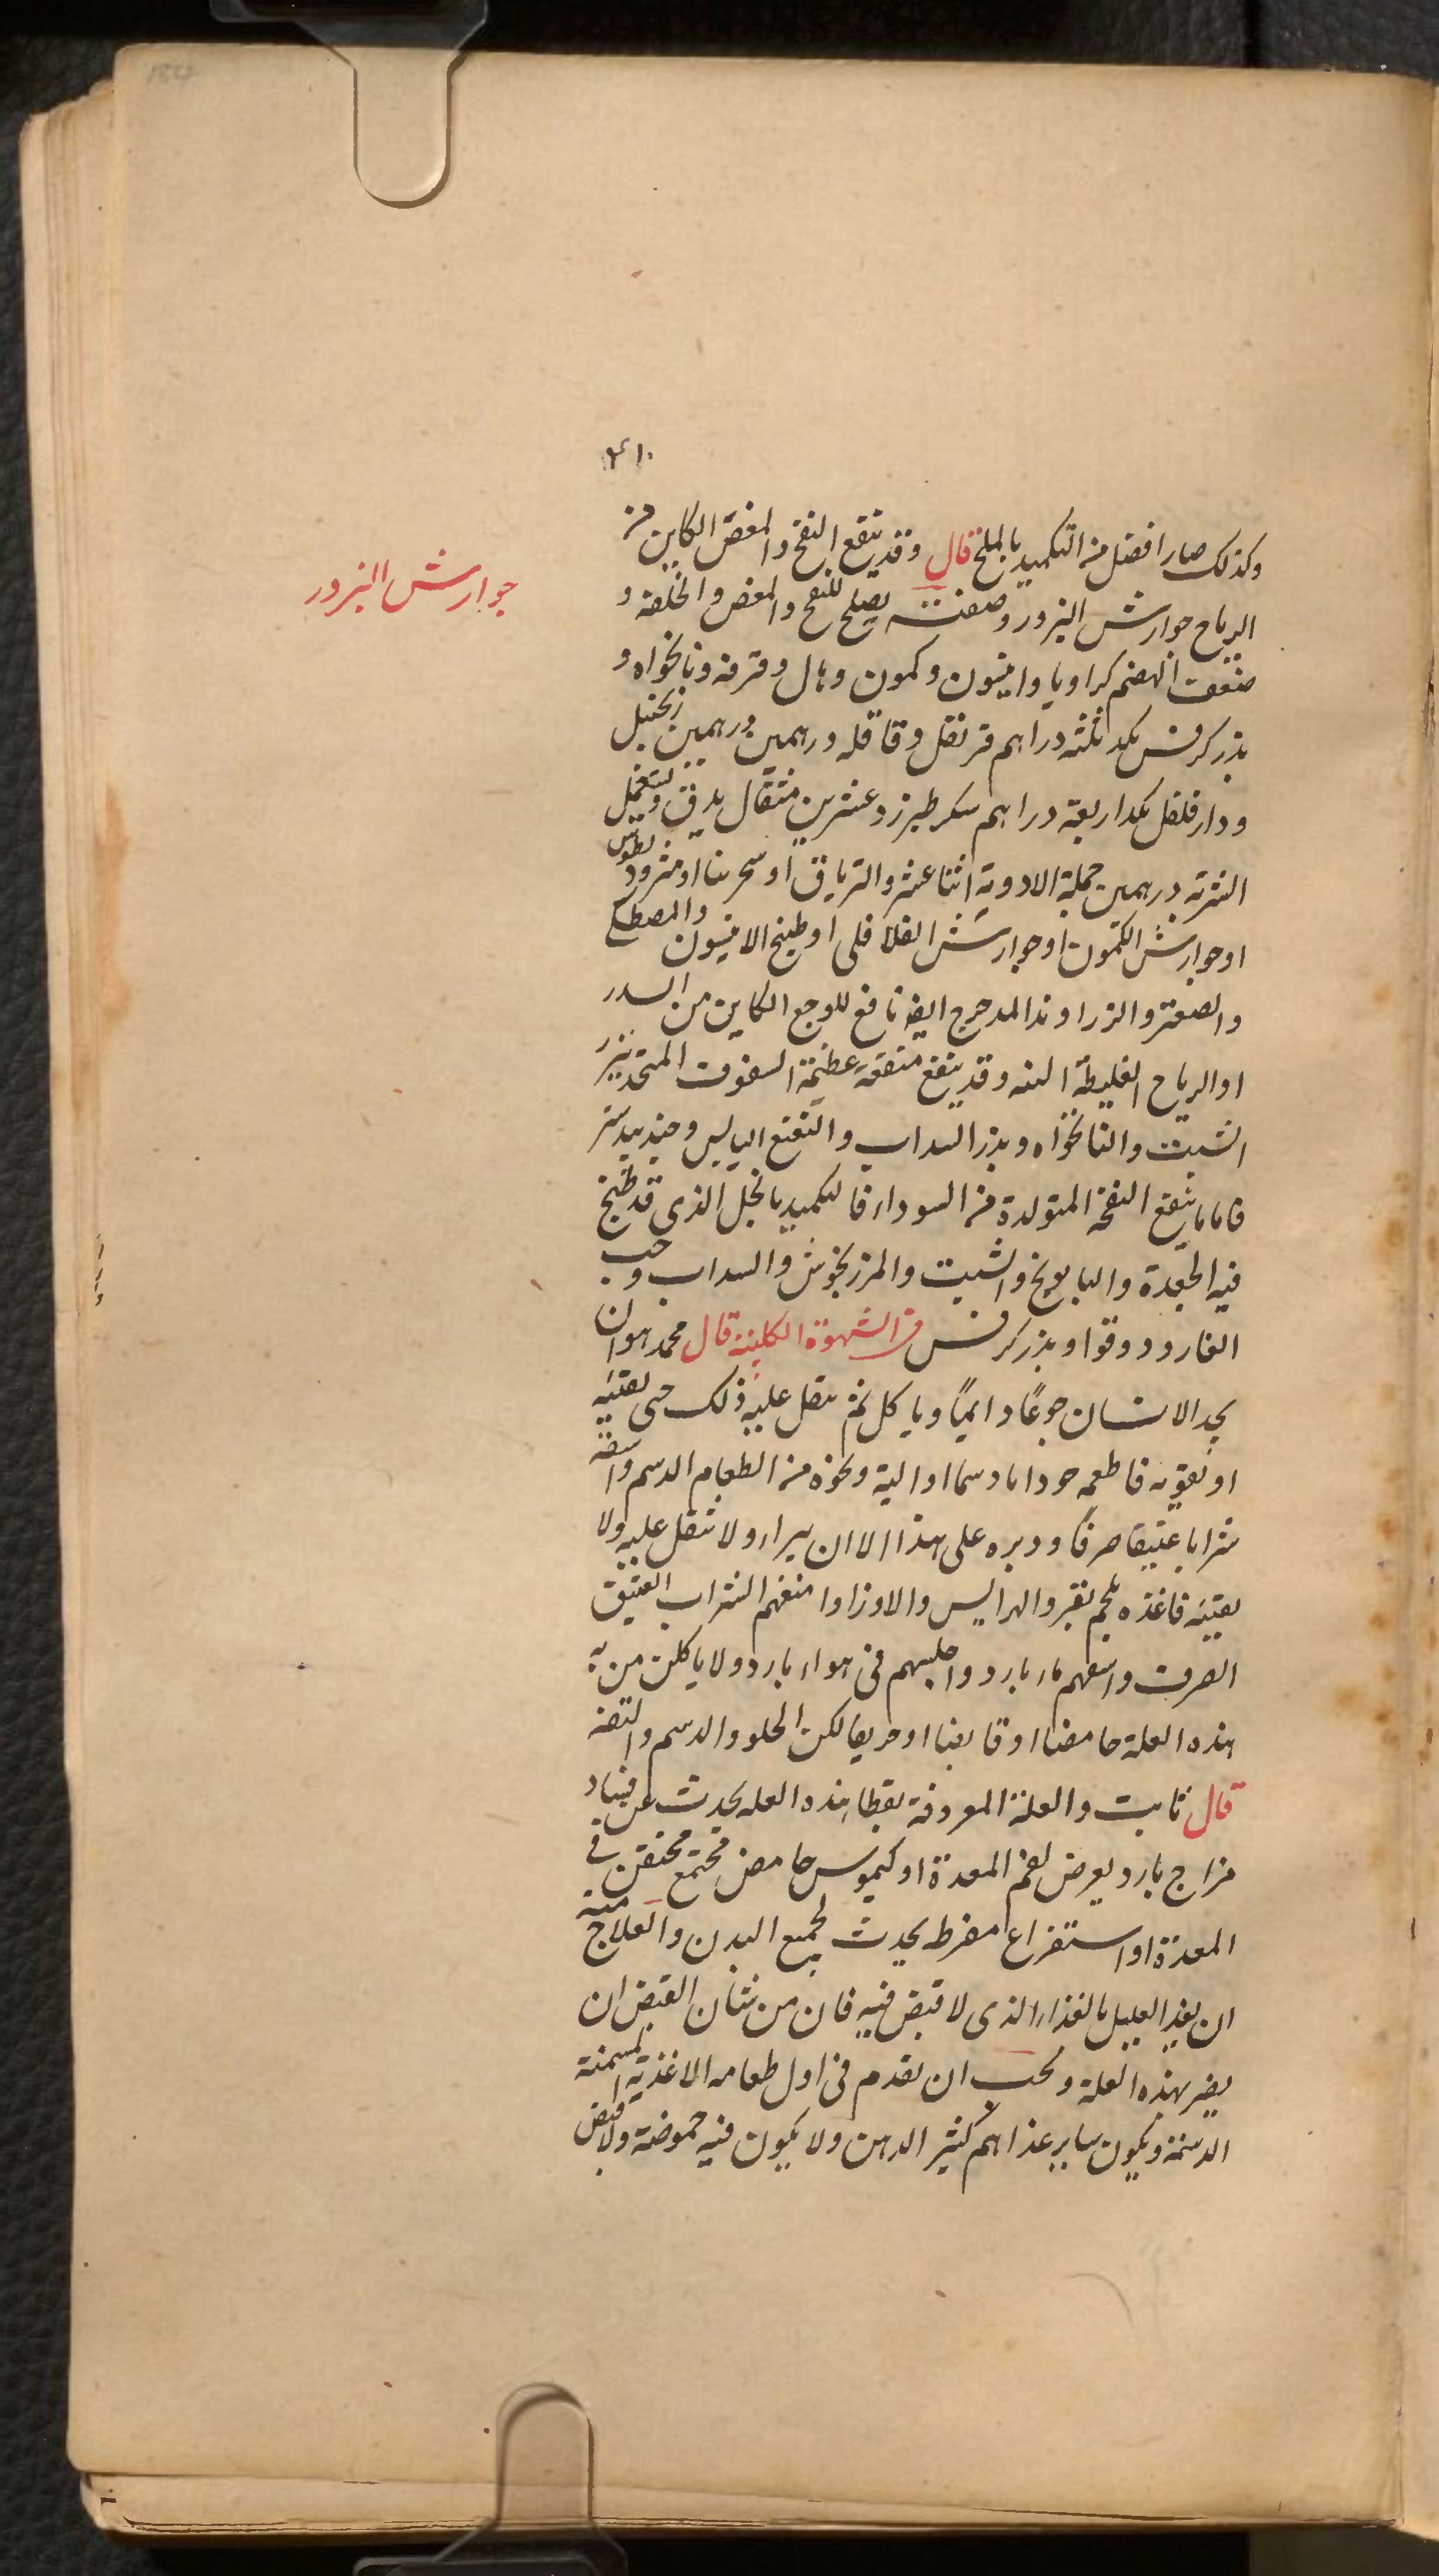 ٢١٠
وكذلك صار افضل من التكميد بالملح قال وقد ينفع النفخ والمغص الكاين من
جوارش البزور
الرياح جوارش البزور وصفته يصلح للنفخ والمغص والخلفة و
ضعف الهضم كراويا وانيسون وكمون وهال وقرفة ونانخواه و
بذر كرفس بكد ثلثه دراهم قرنفل وقاقله درهمين درهمين زنجبيل
ودارفلفل بكد اربعة دراهم سكر طبرزد عشرين مثقال يدق ويستعمل
الشربة درهمين جملة الادوية اثنا عشر والترياق او سجرينا او مثروديطوس
او جوارش الكمون او جوارش الفلافلى او طبيخ الانيسون والمصطكى
والصعتر والزراوند المدحرج ايضا نافع للوجع الكاين من السدد
او الرياح الغليظة النية وقد ينفع منفعة عظيمة السفوف المتخذ ببزر
الشبت والنانخواه وبذر السداب والنعنع اليابس وجندبيدستر
فاما ما ينفع النفخة المتولدة من السوداء فالتكميد بالخل الذى قد طبخ
فيه الجعدة والبابونج والشبت والمرزنجوش والسداب وحب
الغار ودوقوا وبذر كرفس فى الشهوة الكلبية قال محمد هو ان
يجد الانسان جوعًا دايمًا وياكل ثم يثقل عليه ذلك حتى يقيئه
او يقويه فاطعمه جوذابا دسما او الية ونحوه من الطعام الدسم واسقه
شرابا عتيقا صرفًا ودبره على هذا الا ان يبراء ولا يثقل عليه ولا
يقيئه فاغذه بلحم بقر والهرايس والاوز او امنعهم الشراب العتيق
الصرف واسقهم ماء بارد واجلسهم فى هواء بارد ولا ياكلن من به
هذه العلة حامضا او قابضا او حريفا لكن الحلو والدسم والتفه
قال ثابت والعلة المعروفة بقطا هذه العله يحدث عن فساد
مزاج بارد يعرض لفم المعدة او كيموس حامض مجتمع محتقن فى
المعدة او استفراغ مفرط يحدث لجميع البدن والعلاج منه
ان يغذ العليل بالغذاء الذى لا قبض فيه فان من شان القبض ان
يضر بهذه العلة ويجب ان يقدم فى اول طعامه الاغذية المسمنة
الدسمة ويكون ساير غذاهم كثير الدهن ولا يكون فيه حموضة ولا قبض